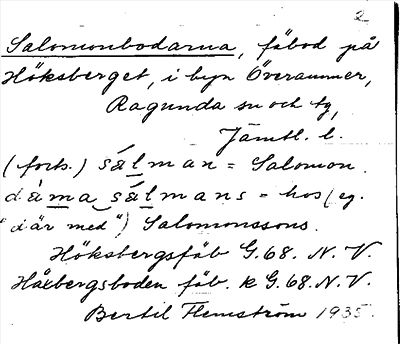 2
Salomonbodarna, fäbod på
Höksberget, i byn Överammer,
Ragunda sn och tg,
Jämtl. l.
(forts.) sálman = Salomon.
dáma sálmans = hos (eg.
"där med") Salomonssons.
Höksbergsfäb G.68. N. V.
Håxbergsboden fäb. k G.68. N.V.
Bertil Flemström 1935.